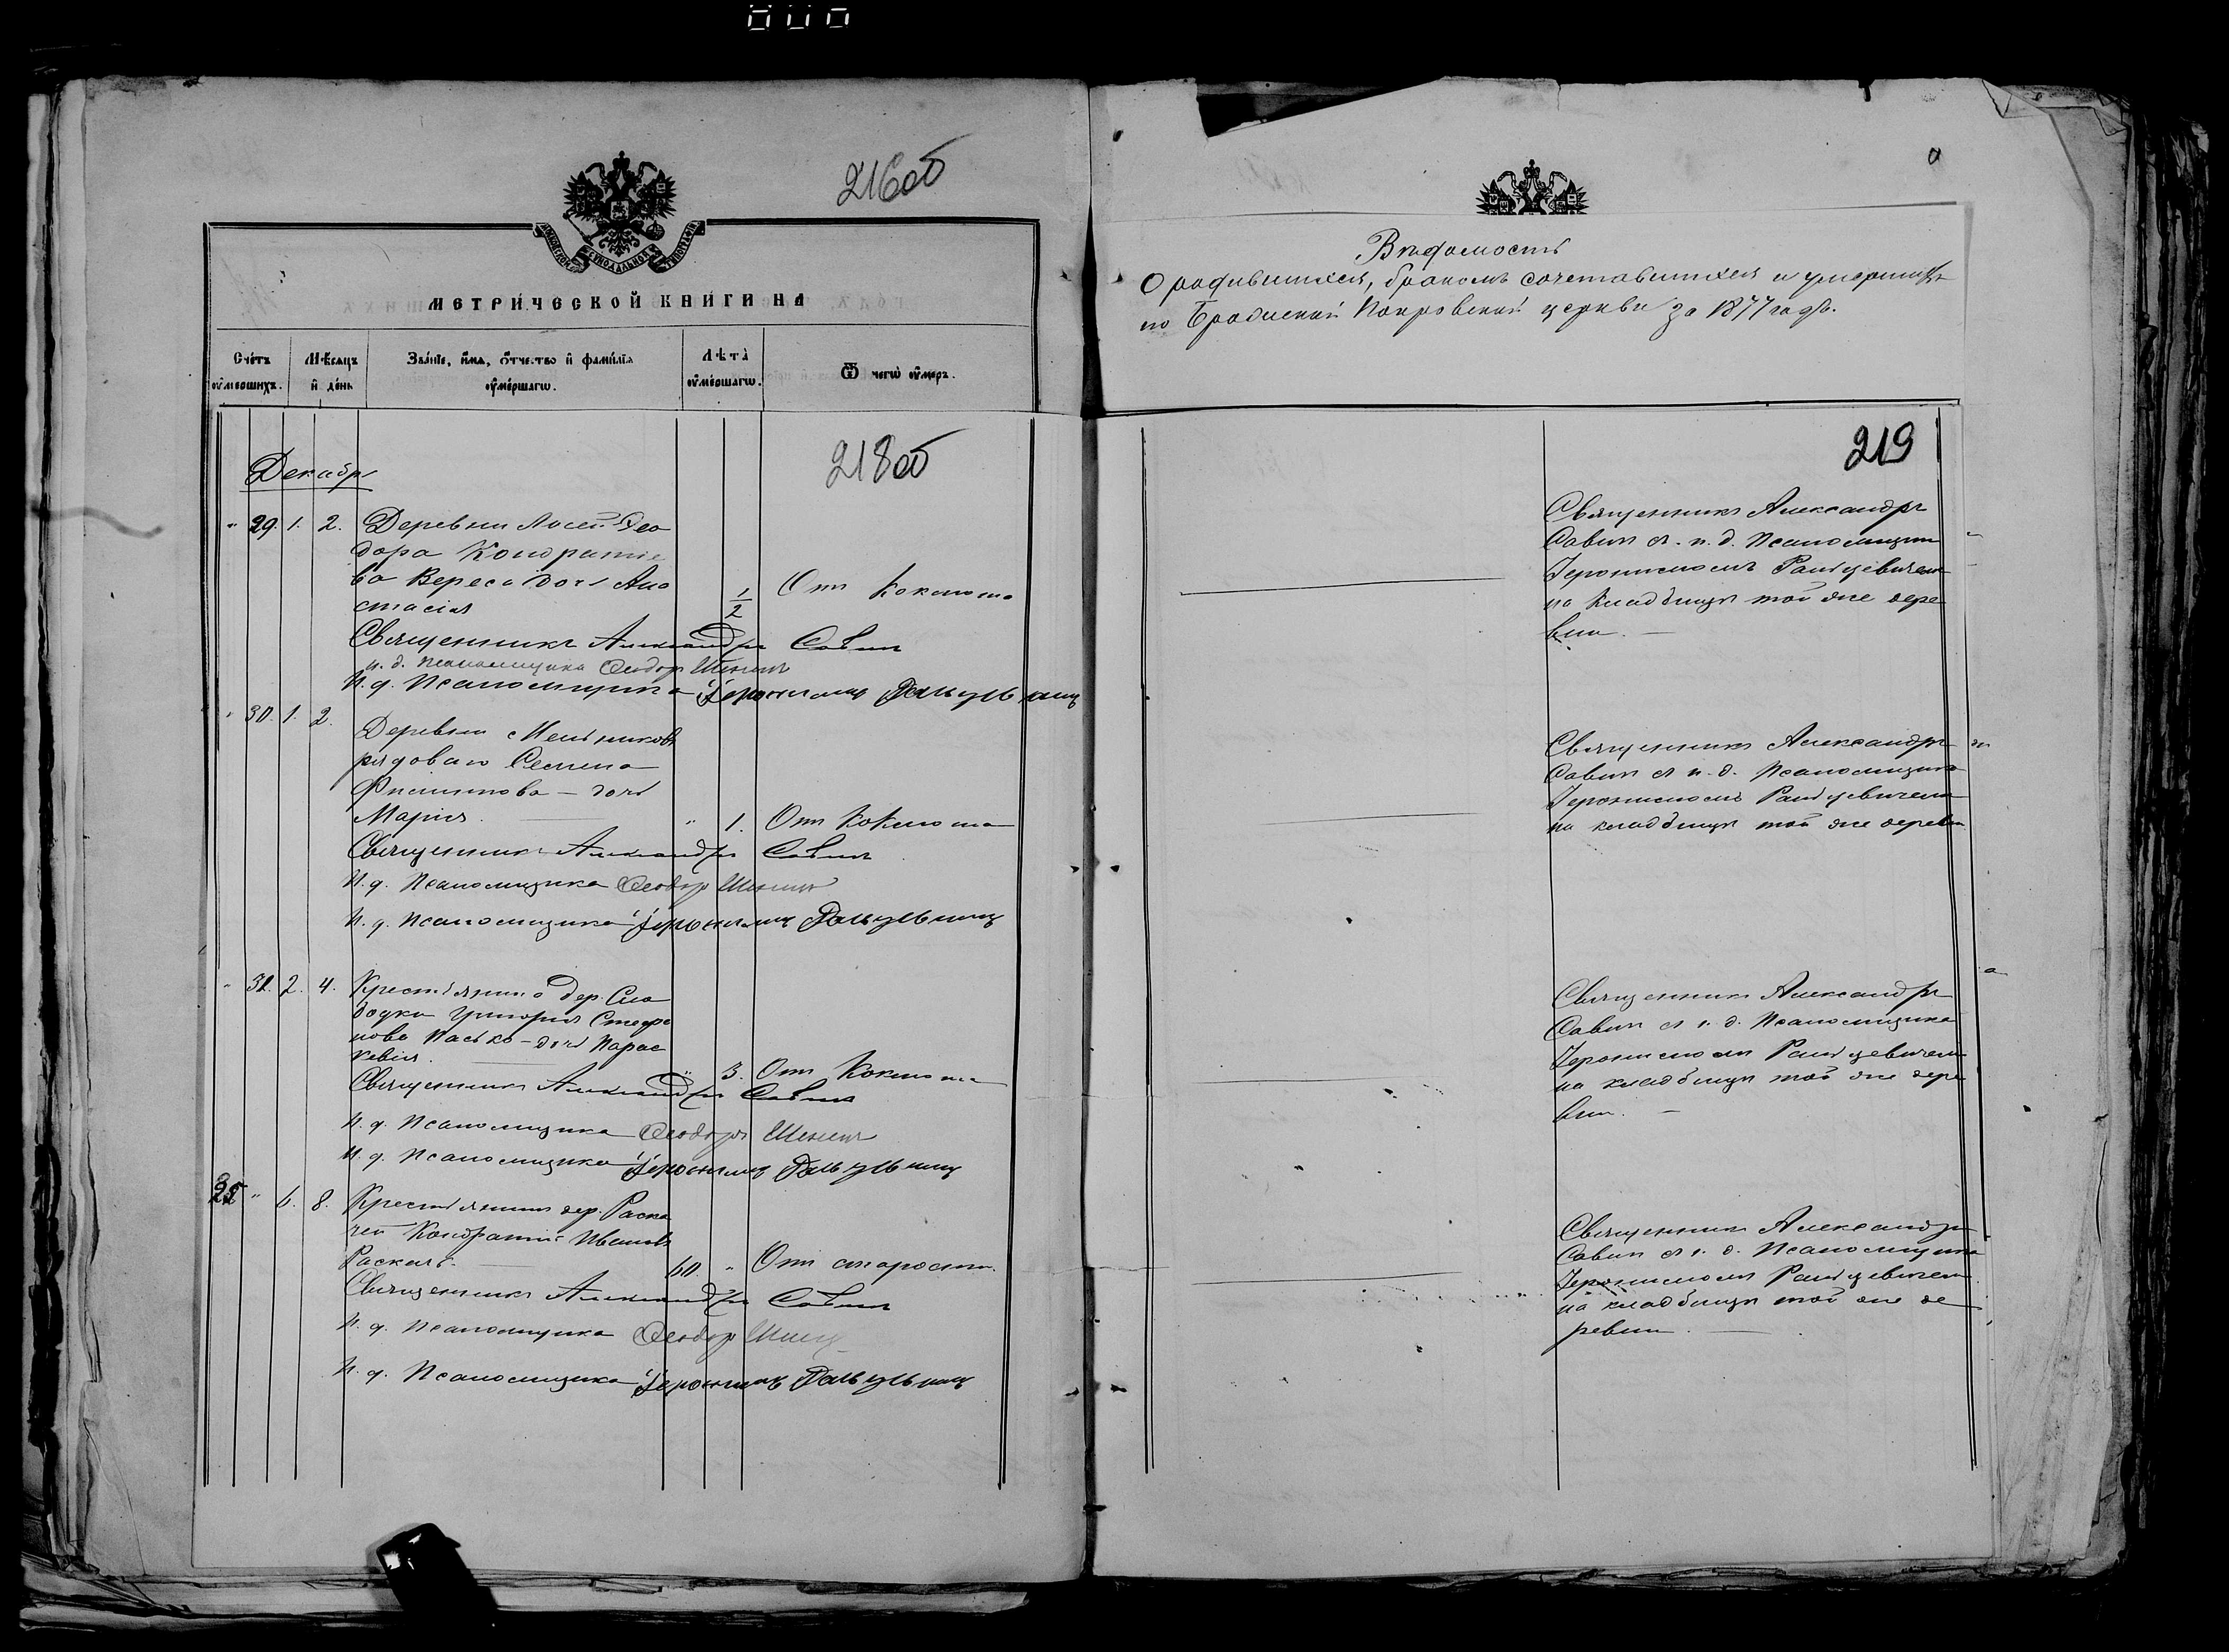 216об
МОСКОВСКОЙ СѴНОДАЛЬНОЙ ТИПОГРАФІИ
МЕТРИ́ЧЕСКОЙ КНИ́ГИ НА
Сче́тъ оу҆ме́ршихъ.
Мѣ́сяцъ и҆ де́нь
Зва́ніе, и҆́мя, ѻ҆́тчество и҆ фами́лія оу҆ме́ршагѡ.
Лѣ́та оу҆ме́ршагѡ.
Ѿ чегѡ̀ оу҆́меръ.
218об
Декабрь
" 29. 1. 2. Деревни Лосей Ѳео
дора Кондратіе
ва Вереса дочь Ана
стасія 1/2 Отъ коклюша
Священникъ Александръ Савичъ
и. д. псаломщика Ѳеодоръ
И. д. Псаломщика Іеронимъ
" 30. 1. 2.
Деревни Мельниковъ
рядоваго Семена
Филипова – дочь
Марія. " 1. Отъ коклюша
Священникъ Александръ Савичъ
И. д. Псаломщика Ѳеодоръ
И. д. Псаломщика Іеронимъ
" 31. 2. 4. Крестьянина дер. Сло
бодки Григорія Стефа
нова Пасько – дочь Парас
кевія. " 3. Отъ коклюша
Священникъ Александръ Савичъ
И. д. Псаломщика Ѳеодоръ
И. д. Псаломщика Іеронимъ
" 6. 8. Крестьянинъ дер. Раска
лей Кондратій Ивановъ
Раскаль. 60. " Отъ старости.
Священникъ Александръ Савичъ
И. д. Псаломщика Ѳеодоръ
И. д. Псаломщика Іеронимъ
Вѣдомость
О родившихся, бракомъ сочетавшихся и умершихъ
по Покровской церкви за 1877 годъ.
219
Священникъ Александръ
Савич съ и. д. Псаломщика
Іеронимомъ
на кладбищѣ той же дере
вни. –
Священникъ Александръ
Савич съ и. д. Псаломщика
Іеронимомъ
на кладбищѣ той же деревни
Священникъ Александръ
Савич съ и. д. Псаломщика
Іеронимомъ
на кладбищѣ той же дере
вни. –
Священникъ Александръ
Савич съ и. д. Псаломщика
Іеронимомъ
на кладбищѣ той же де
ревни. –